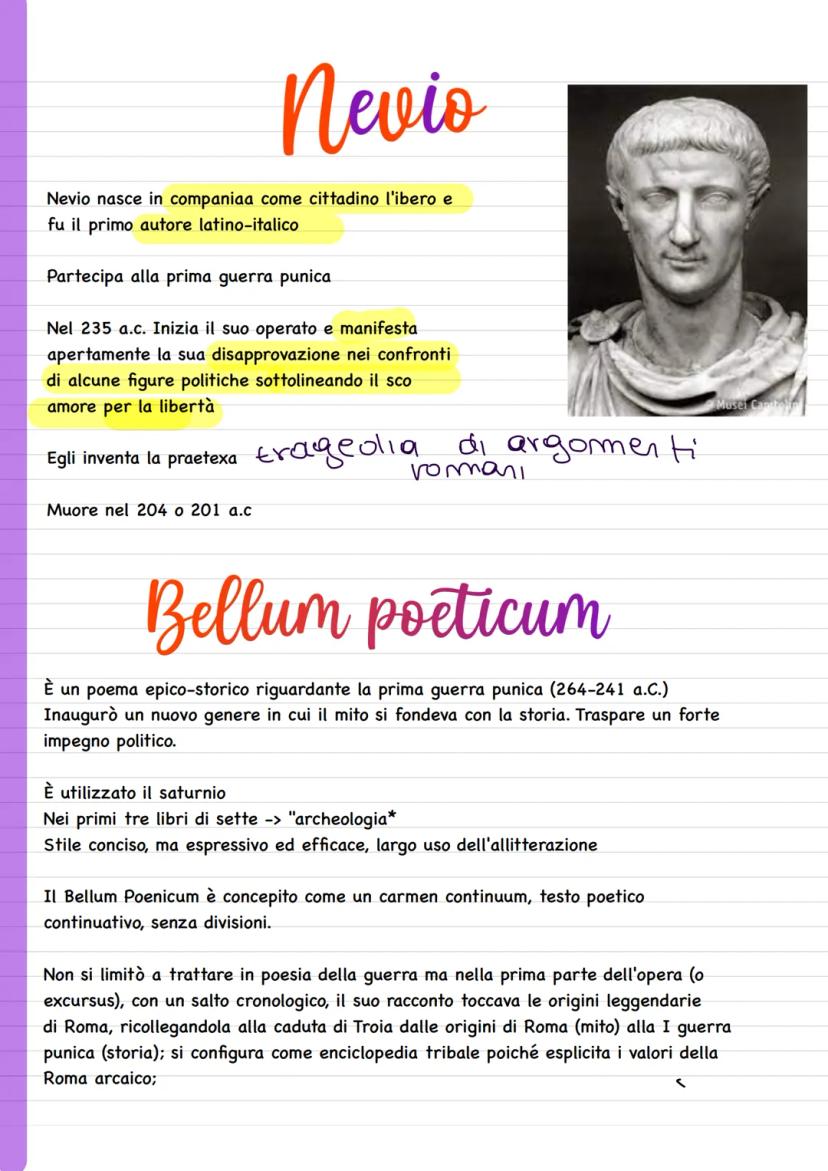 Nevio
Nevio nasce in companiaa come cittadino l'ibero e
fu il primo autore latino-italico
Partecipa alla prima guerra punica
Nel 235 a.c. Inizia il suo operato e manifesta
apertamente la sua disapprovazione nei confronti
di alcune figure politiche sottolineando il sco
amore per la libertà
© Musei Capitolini
Egli inventa la praetexa tragedia di argomenti
romani
Muore nel 204 o 201 a.c
Bellum poeticum
È un poema epico-storico riguardante la prima guerra punica (264-241 a.C.)
Inaugurò un nuovo genere in cui il mito si fondeva con la storia. Traspare un forte
impegno politico.
È utilizzato il saturnio
Nei primi tre libri di sette -> "archeologia*
Stile conciso, ma espressivo ed efficace, largo uso dell'allitterazione
Il Bellum Poenicum è concepito come un carmen continuum, testo poetico
continuativo, senza divisioni.
Non si limitò a trattare in poesia della guerra ma nella prima parte dell'opera (o
excursus), con un salto cronologico, il suo racconto toccava le origini leggendarie
di Roma, ricollegandola alla caduta di Troia dalle origini di Roma (mito) alla I guerra
punica (storia); si configura come enciclopedia tribale poiché esplicita i valori della
Roma arcaico;